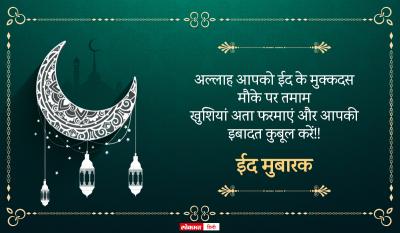 अल्लाह आपको ईद के मुक्कदस
मौके पर तमाम
खुशियां अता फरमाएं और आपकी
इबादत कुबूल करें!!
ईद मुबारक
लोकमत हिन्दी